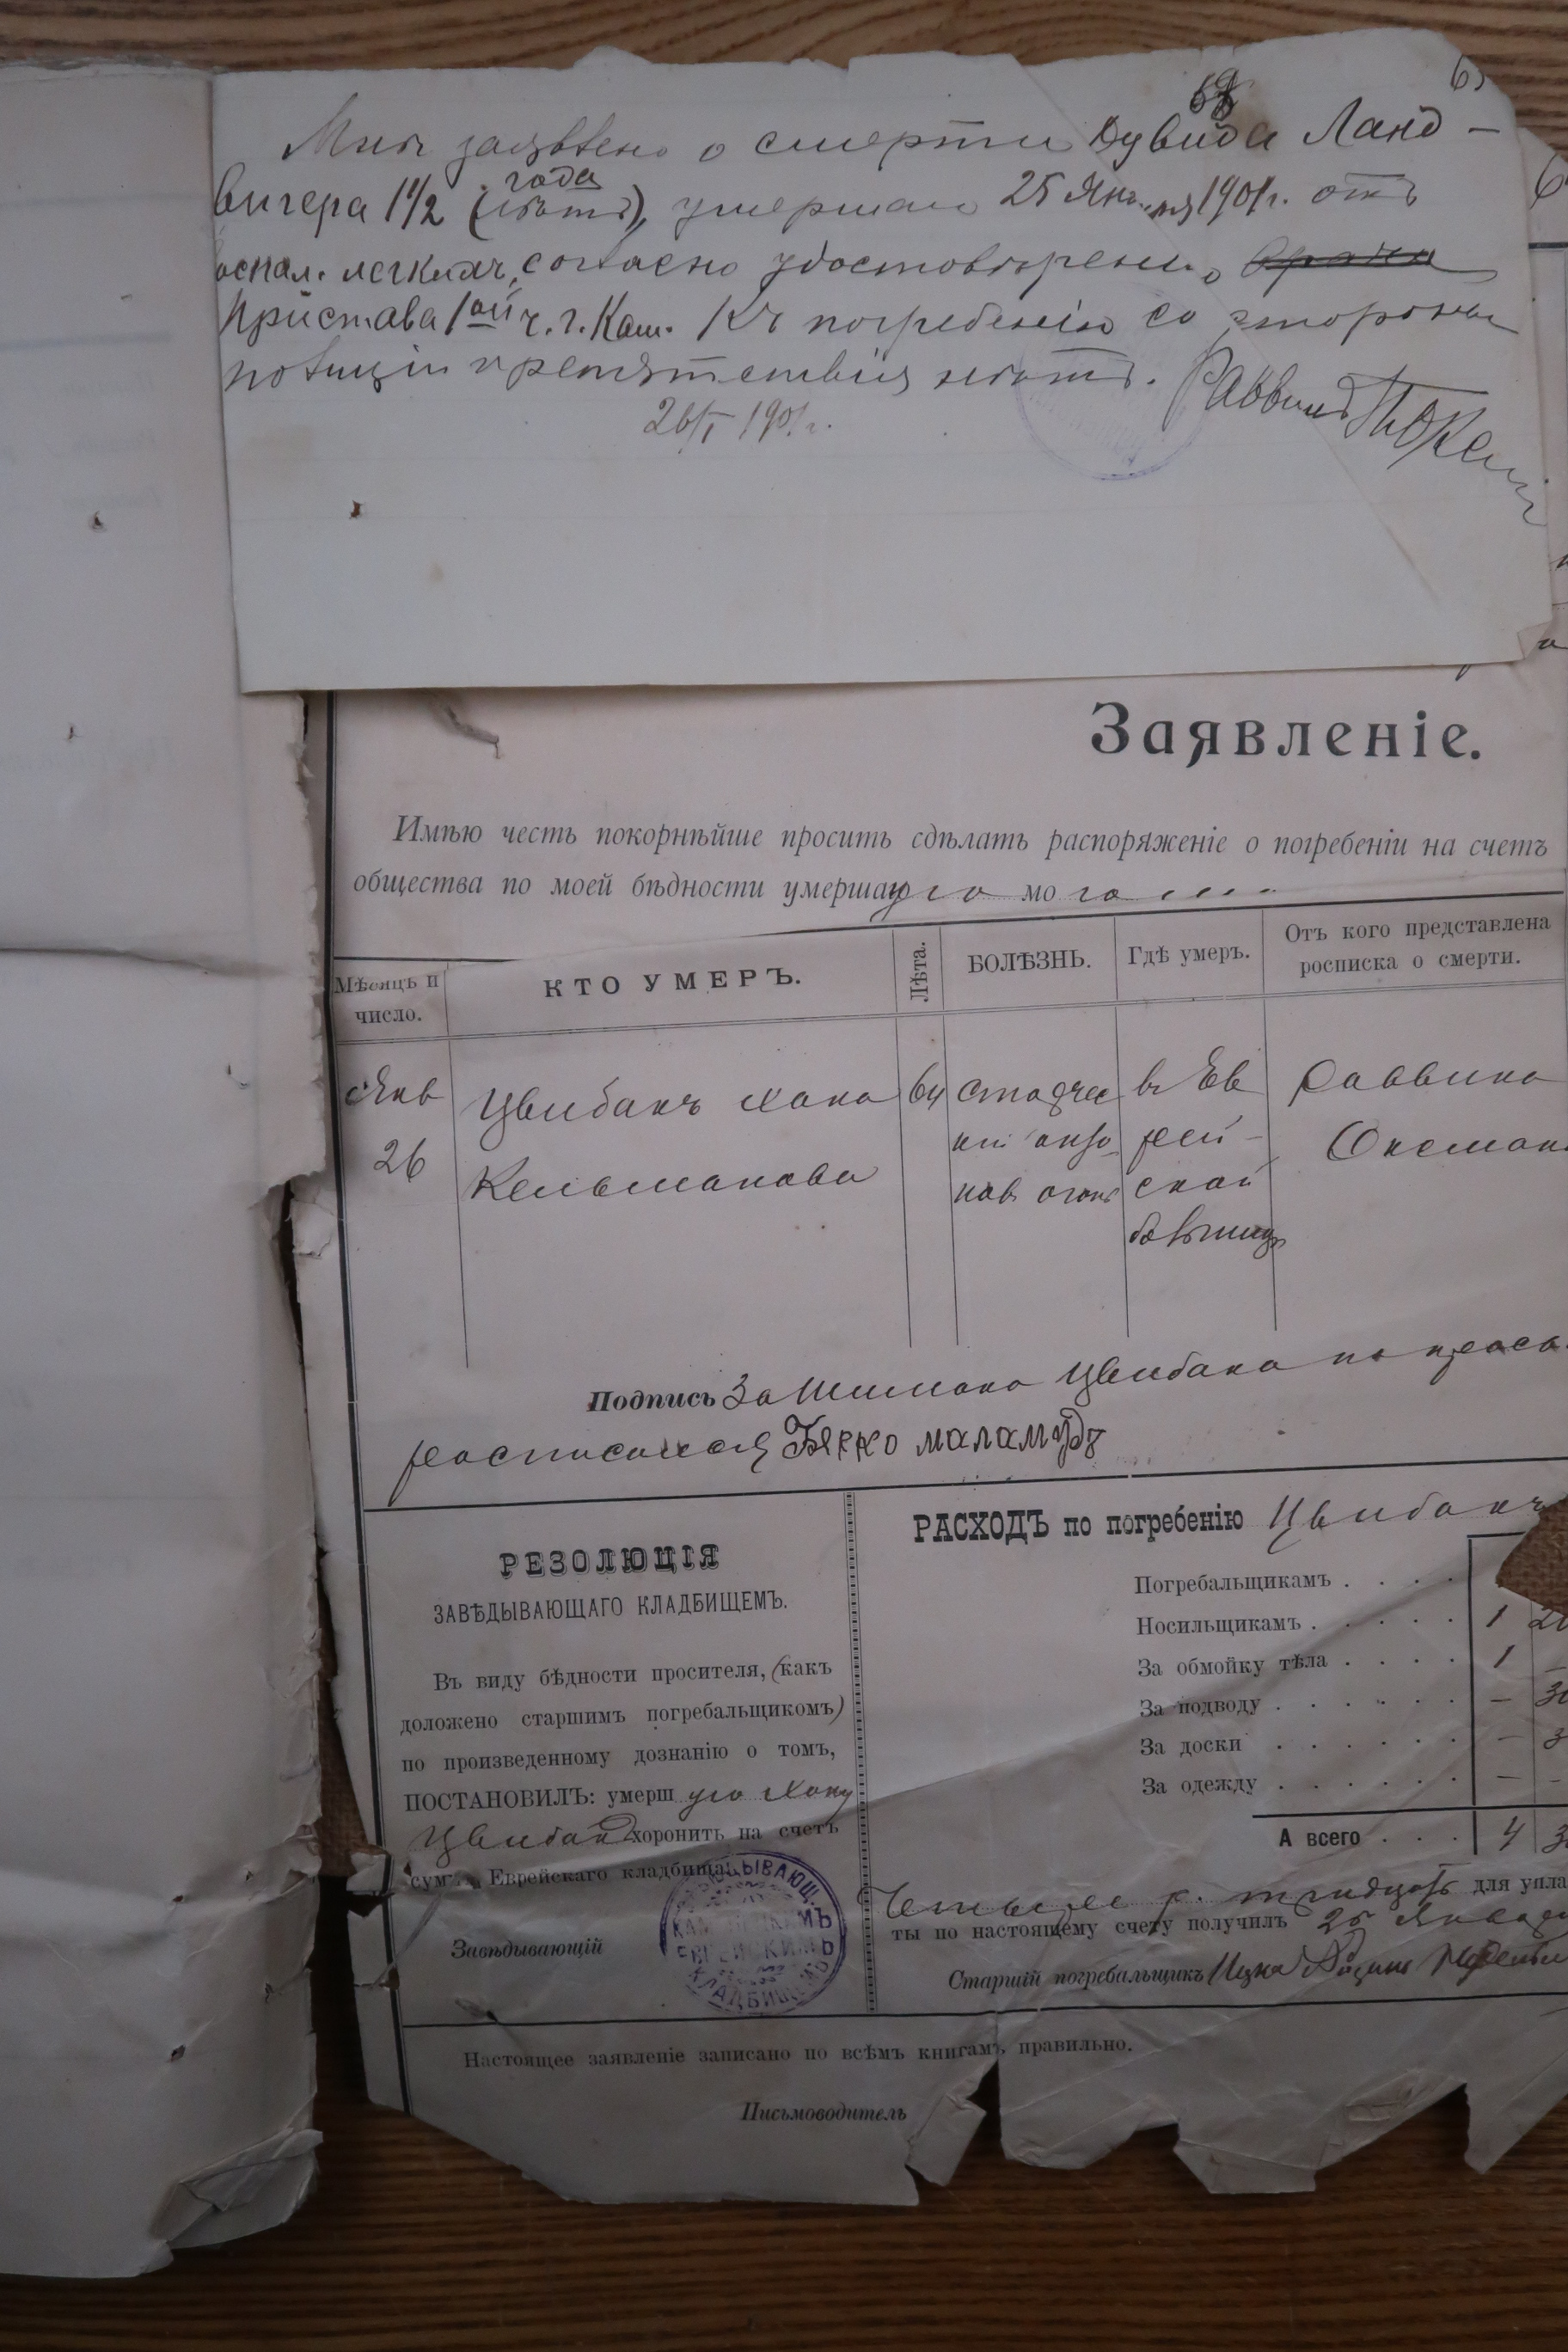 68
Мнѣ заявлено о смерти Дувида Ланд-
вигера 1 1/2 года (лѣтъ), умершаго 25 Января 1901 г. отъ
воспал. легкихъ, согласно удостовѣренію врача
Пристава 1ой ч. г. Кам. Къ погребенію со стороны
полиціи препятствія нѣтъ. Раввинъ
26/I 1901 г.
Заявленіе.
Имѣю честь покорнѣйше просить сдѣлать распоряженіе о погребеніи на счетъ
общества по моей бѣдности умершаго мого
Мѣсяцъ и число.
КТО УМЕРЪ.
Лѣта.
БОЛѢЗНЬ.
Гдѣ умеръ.
Отъ кого представлена росписка о смерти.
Янв 26
Цвибакъ Хана Кельманова
64
въ Еврейской больницѣ
Раввина Оксмана
Подпись За Шимона Цвибака по прось
росписался Берко маламудъ
РЕЗОЛЮЦІЯ
ЗАВѢДЫВАЮЩАГО КЛАДБИЩЕМЪ.
Въ виду бѣдности просителя, (какъ
доложено старшимъ погребальщикомъ)
по произведенному дознанію о томъ,
ПОСТАНОВИЛЪ: умерш уго Хану
Цвибакъ хоронить на счетъ
суммъ Еврейскаго кладбища.
Завѣдывающій
ЗАВѢДЫВАЮЩ. КАМЕНЕЦКИМЪ ЕВРЕЙСКИМЪ КЛАДБИЩЕМЪ
РАСХОДЪ по погребенію Цвибакъ
Погребальщикамъ
Носильщикамъ 1 20
За обмойку тѣла 1 —
За подводу — 30
За доски — 3
За одежду — —
А всего 4 3
Четыре р. тридцать для упла
ты по настоящему счету получилъ 26 Января
Старшій погребальщикъ Ицко
Настоящее заявленіе записано по всѣмъ книгамъ правильно.
Письмоводитель